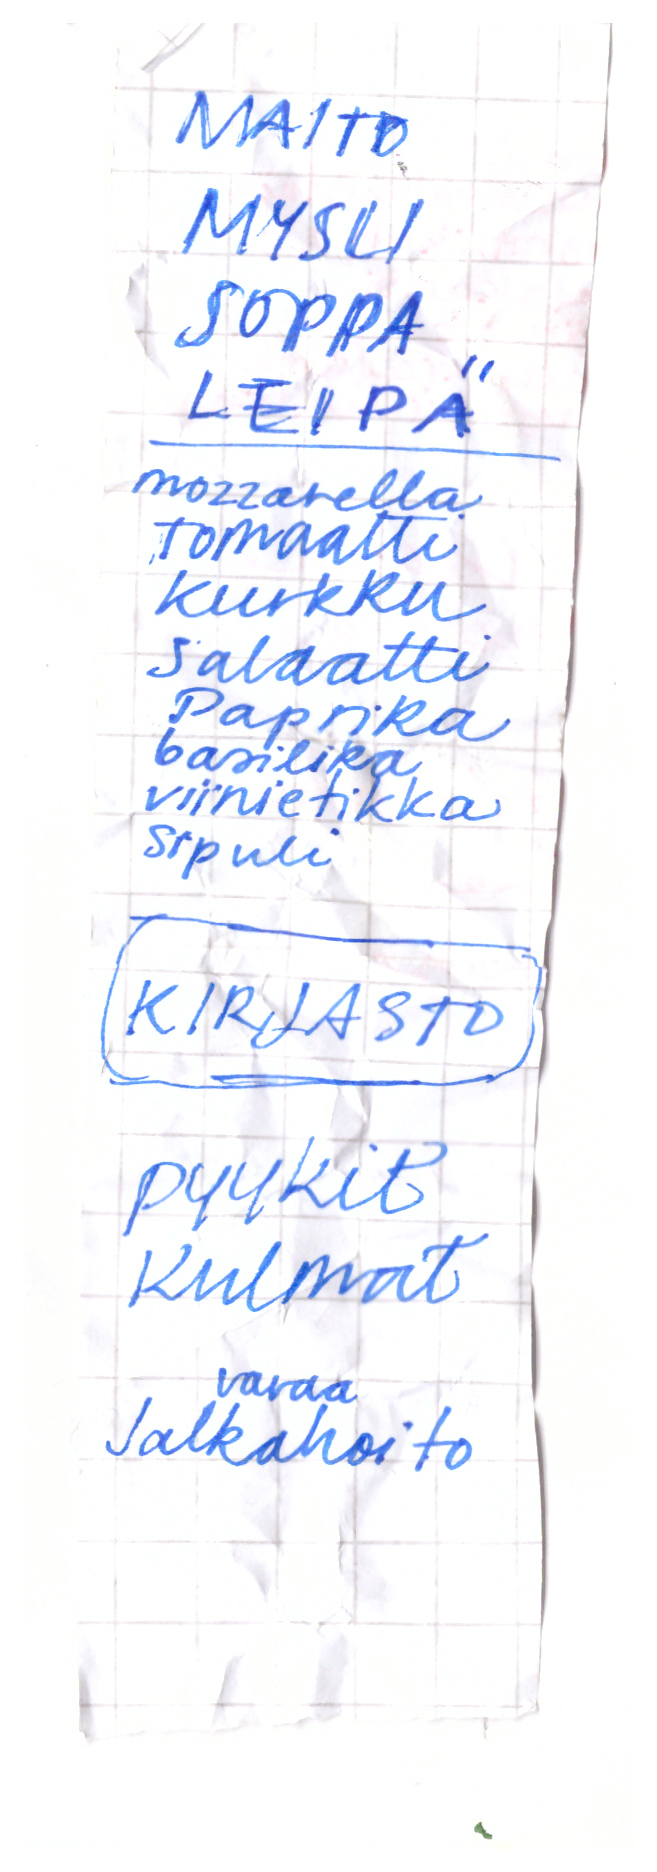 MAITO
MYSLI
SOPPA
LEIPÄ
mozzarella
tomaatti
kurkku
salaatti
Paprika
basilika
viinietikka
sipuli
KIRJASTO
pyykit
Kulmat
varaa
Jalkahoito